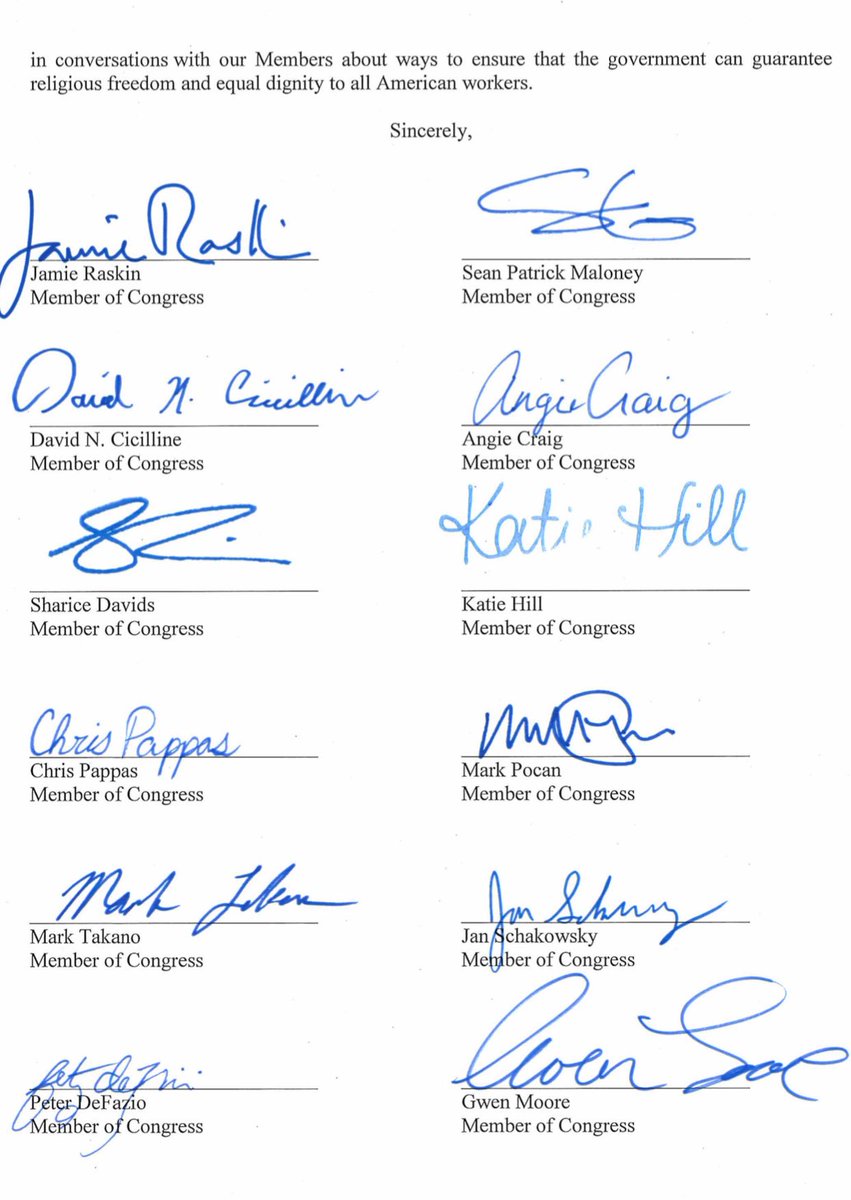 in conversations with our Members about ways to ensure that the government can guarantee
religious freedom and equal dignity to all American workers.
Sincerely,
Jamie Raskin
Jamie Raskin
Member of Congress
Sean Patrick Maloney
Member of Congress
David N. Cicilline
David N. Cicilline
Member of Congress
Angie Craig
Angie Craig
Member of Congress
Sharice Davids
Member of Congress
Katie Hill
Katie Hill
Member of Congress
Chris Pappas
Chris Pappas
Member of Congress
Mark Pocan
Member of Congress
Mark Takano
Mark Takano
Member of Congress
Jan Schakowsky
Member of Congress
Peter DeFazio
Member of Congress
Gwen Moore
Member of Congress